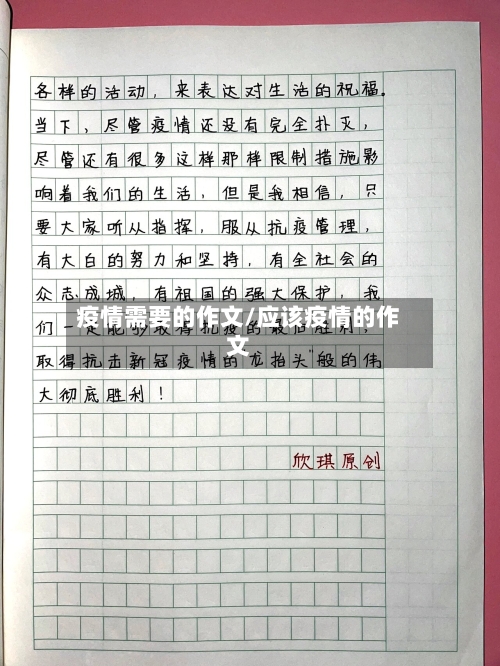 各样的活动，来表达对生活的祝福。
当下，尽管疫情还没有完全扑灭，
尽管还有很多这样那样限制措施影
响着我们的生活，但是我相信，只
要大家听从指挥，服从抗疫管理，
有大白的努力和坚持，有全社会的
众志成城，有祖国的强大保护，我
们一定能够取得抗疫的最后胜利，
疫情需要的作文/应该疫情的作
文
取得抗击新冠疫情的"龙抬头"般的伟
大彻底胜利！
欣琪原创